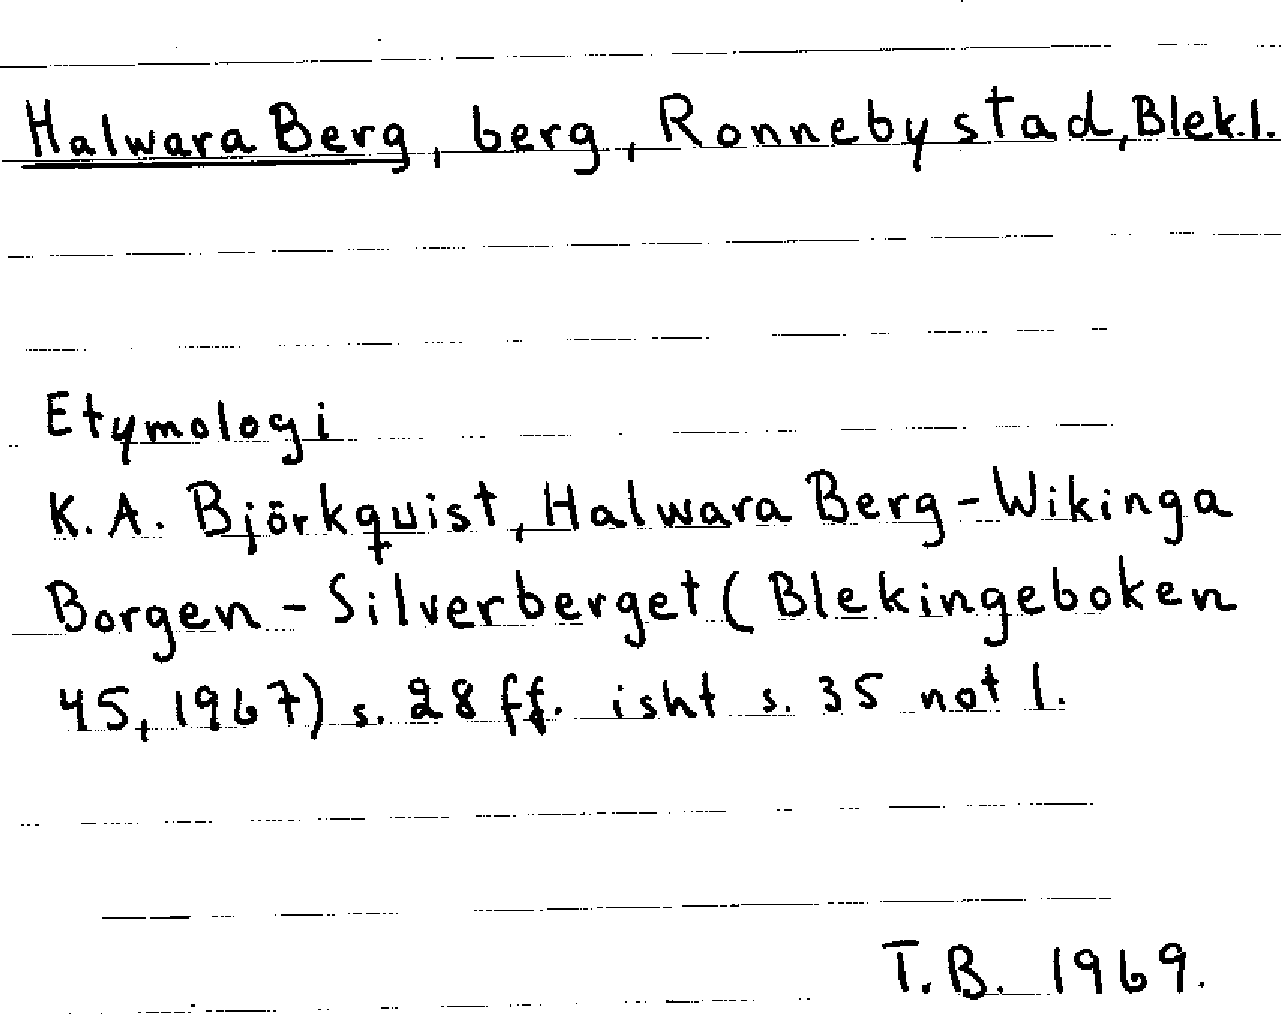 Halwara Berg, berg, Ronneby stad, Blek.l.
Etymologi
K. A. Björkquist, Halwara Berg - Wikinga
Borgen - Silverberget (Blekingeboken
45, 1967) s. 28 ff. isht s. 35 not 1.
T. B. 1969.